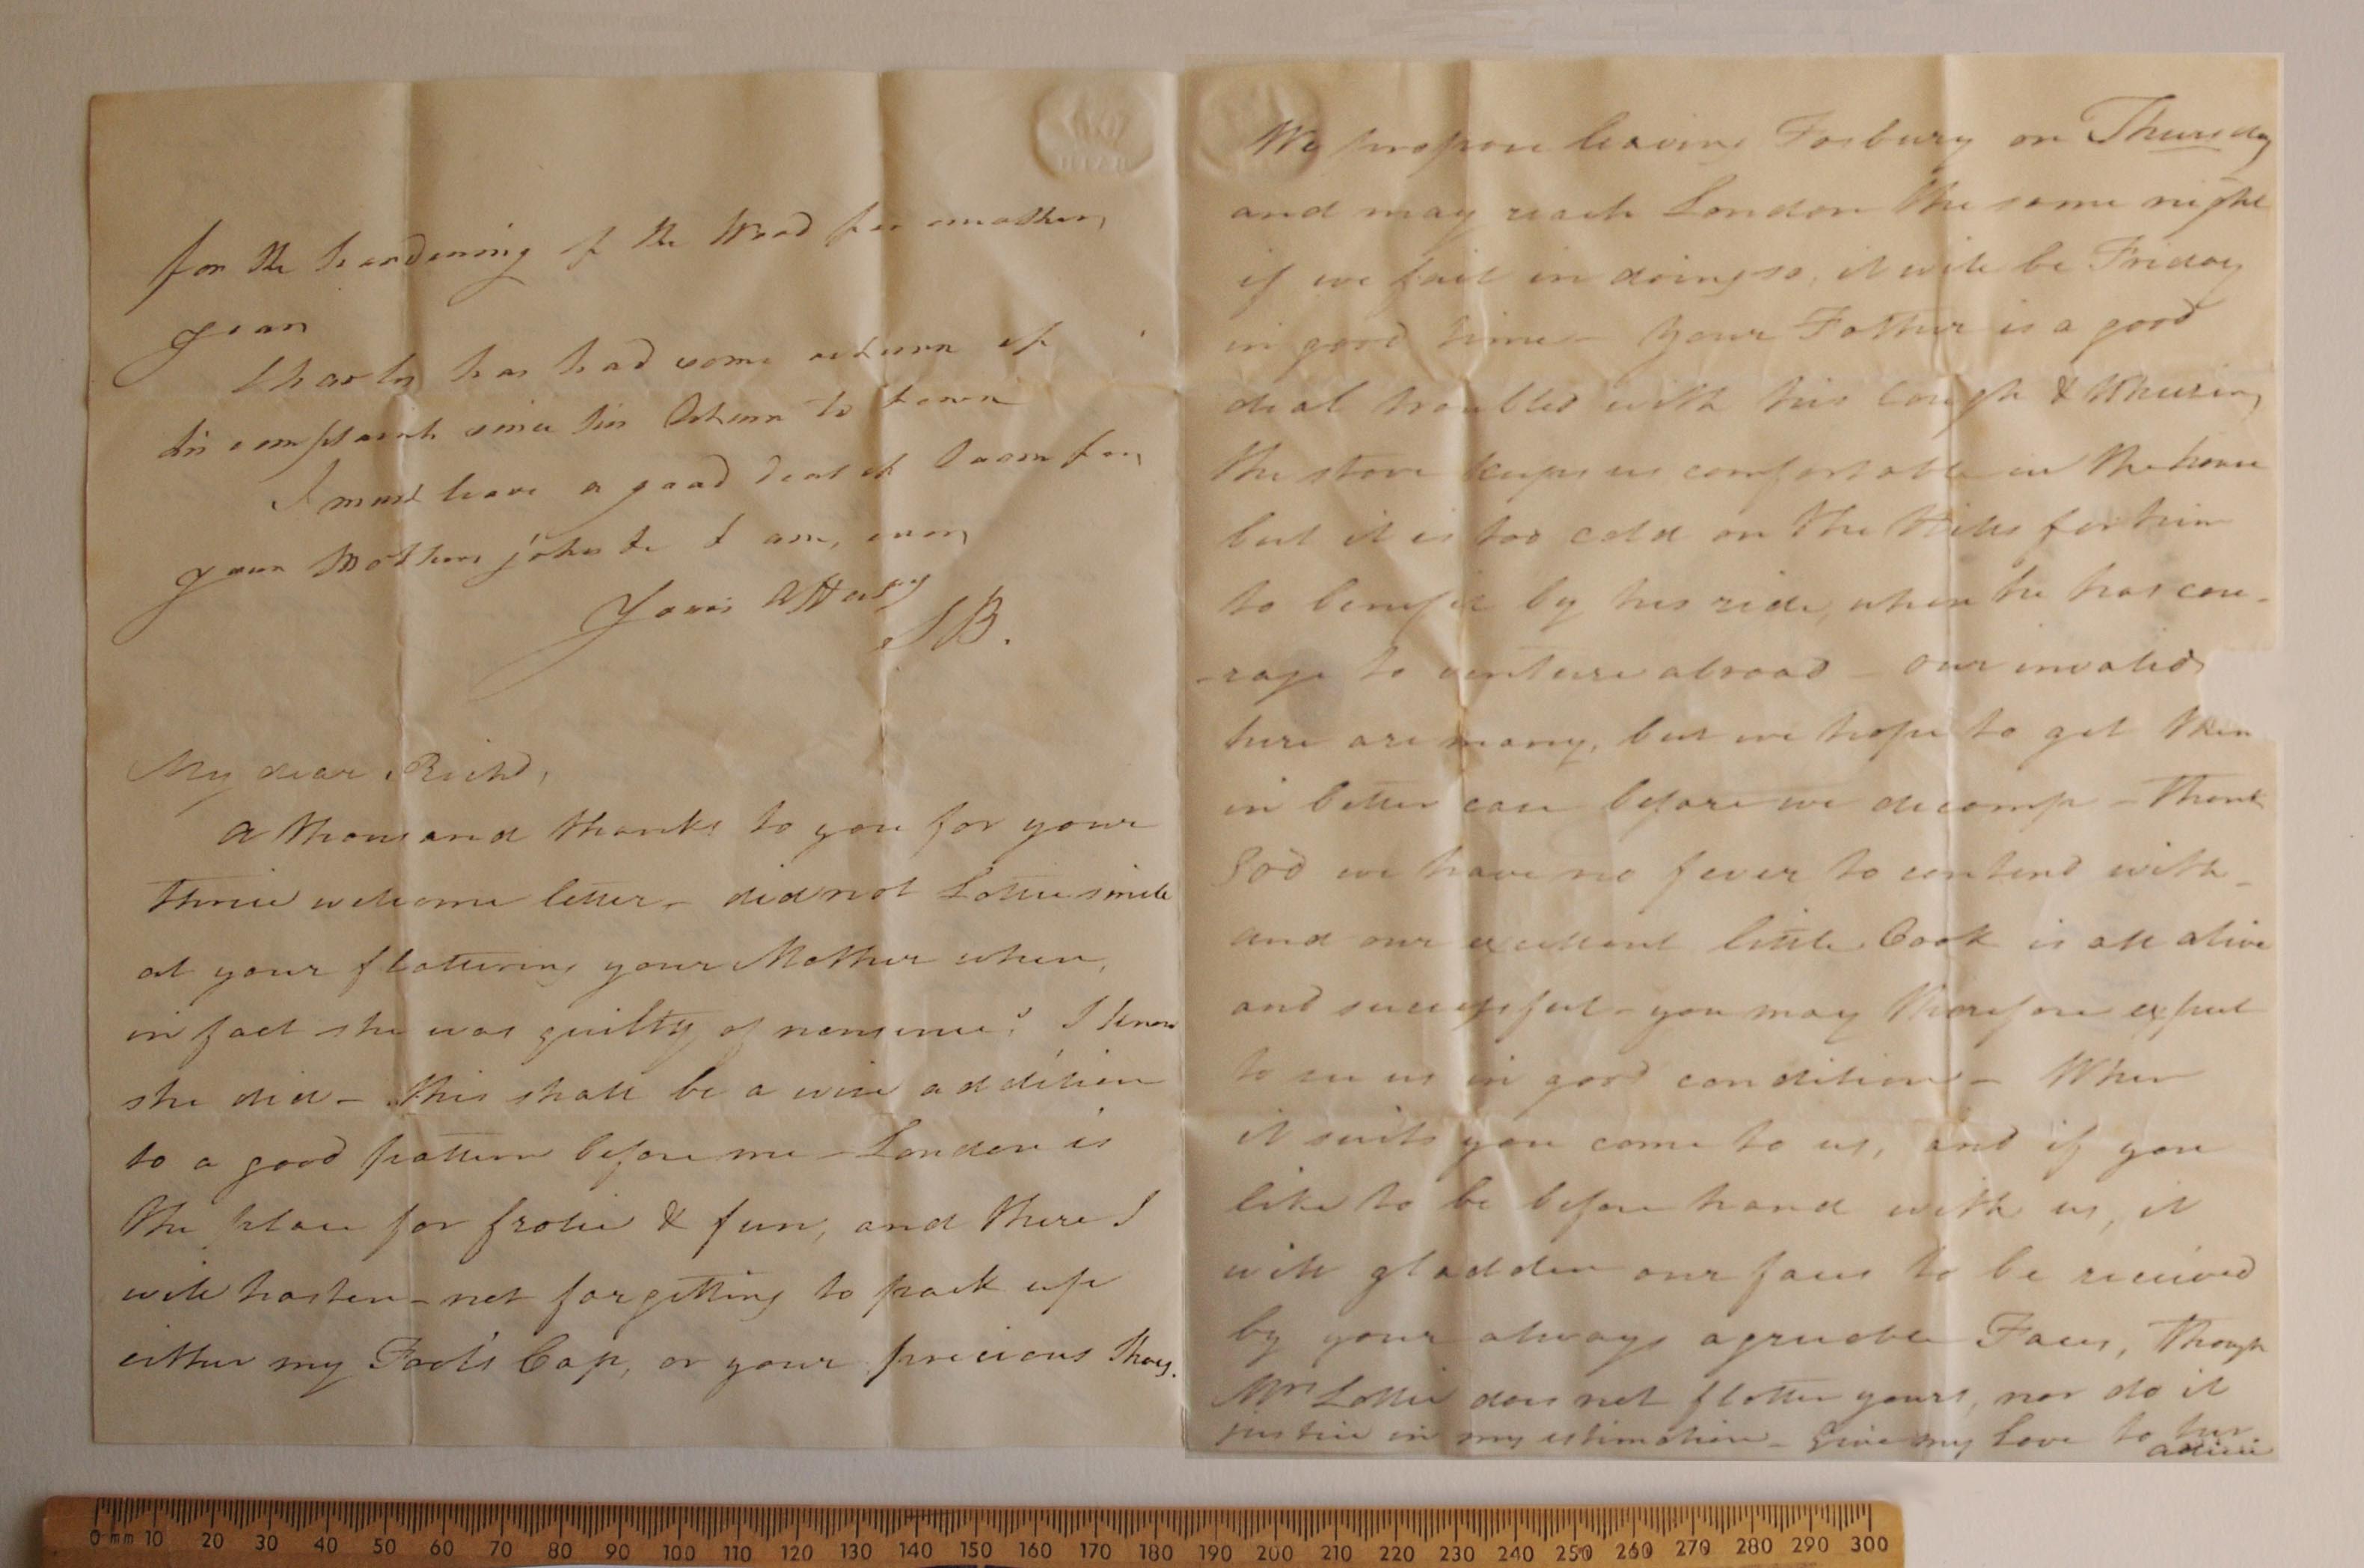 BATH
for the hardening of the Wood for another
year
Charles has had some return of
his complaint since his Return to town
I must leave a good deal of Room for
your Mothers jokes &c I am, ever
Yours Affecly
SB.
My dear Richd,
A thousand thanks to you for your
thrice welcome letter - did not Lottie smile
at your flattering your Mother when,
in fact she was guilty of nonsense? I know
she did - this shall be a wise addition
to a good pattern before me - London is
the place for frolic & fun, and there I
will hasten - not forgetting to pack up
either my Fools Cap, or your precious
We propose leaving Fosbury on Thursday
and may reach London the same night
if we fail in doing so, it will be Friday
in good time - Your Father is a good
deal troubled with his Cough & Wheezing
the stove keeps us comfortable in the house
but it is too cold on the Hills for him
to benefit by his ride, when he has cou-
-rage to venture abroad - Our invalids
here are many, but we hope to get them
in better case before we decamp - Thank
God we have no fever to contend with -
and our excellent little Cook is all alive
and successful - you may therefore expect
to see us in good condition - When
it suits you come to us, and if you
like to be before hand with us, it
will gladden our faces to be received
by your always agreeable Faces, though
Mrs Lottie does not flatter yours, nor do it
justice in my estimation - Give my Love to her
adieu
0 mm 10 20 30 40 50 60 70 80 90 100 110 120 130 140 150 160 170 180 190 200 210 220 230 240 250 260 270 280 290 300